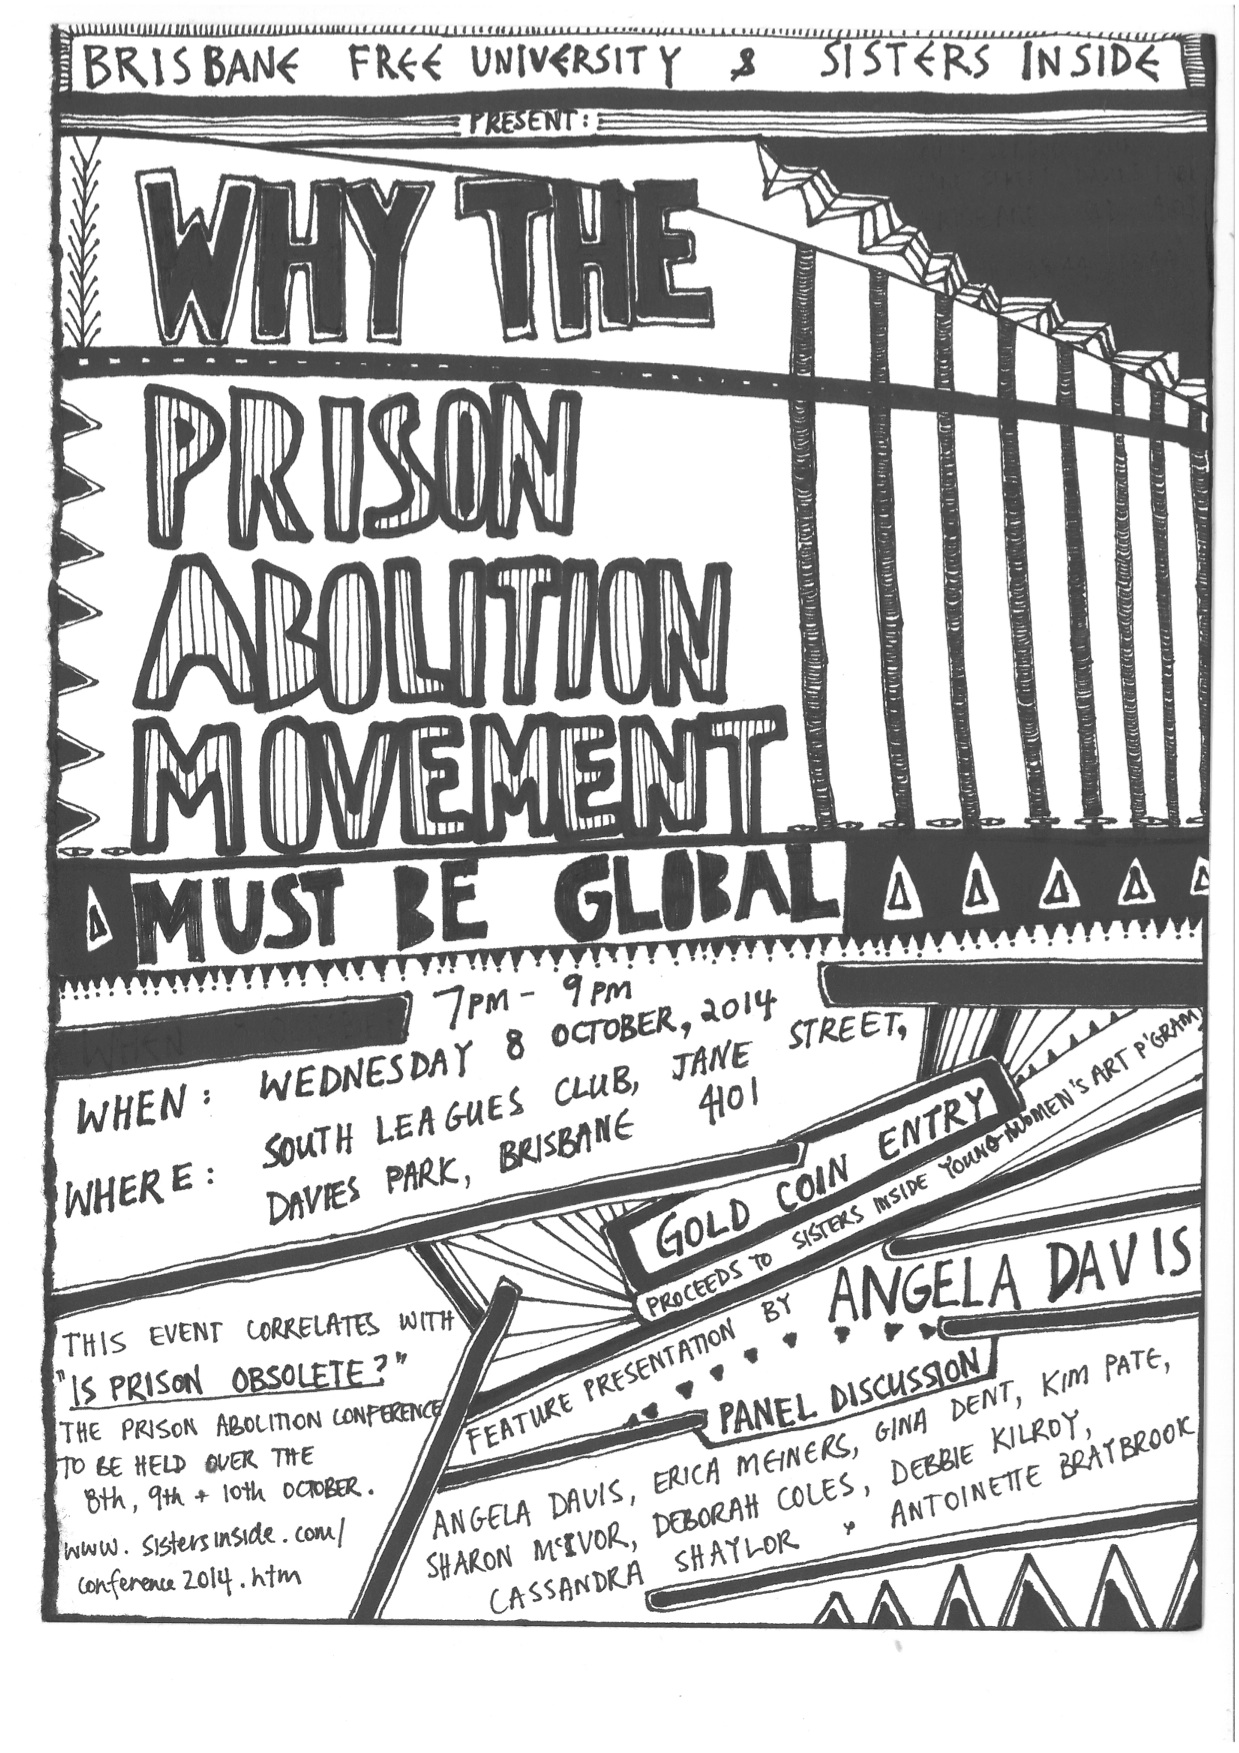 BRISBANE FREE UNIVERSITY & SISTERS INSIDE
PRESENT:
WHY THE
PRISON
ABOLITION
MOVEMENT
MUST BE GLOBAL
7PM - 9PM
WHEN: WEDNESDAY 8 OCTOBER, 2014
WHERE: SOUTH LEAGUES CLUB, JANE STREET,
DAVIES PARK, BRISBANE 4101
GOLD COIN ENTRY
PROCEEDS TO SISTERS INSIDE YOUNG WOMEN'S ART P'GRAM
THIS EVENT CORRELATES WITH
"IS PRISON OBSOLETE?"
THE PRISON ABOLITION CONFERENCE
TO BE HELD OVER THE
8th, 9th + 10th OCTOBER.
www.sistersinside.com/
conference2014.htm
FEATURE PRESENTATION BY ANGELA DAVIS
PANEL DISCUSSION
ANGELA DAVIS, ERICA MEINERS, GINA DENT, KIM PATE,
SHARON McIVOR, DEBORAH COLES, DEBBIE KILROY,
CASSANDRA SHAYLOR & ANTOINETTE BRAYBROOK